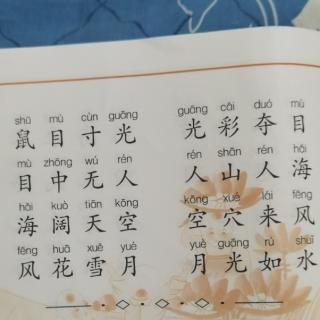 shǔ mù cùn guāng
鼠目寸光
mù zhōng wú rén
目中无人
hǎi kuò tiān kōng
海阔天空
fēng huā xuě yuè
风花雪月
guāng cǎi duó mù
光彩夺目
rén shān rén hǎi
人山人海
kōng xué lái fēng
空穴来风
yuè guāng rú shuǐ
月光如水